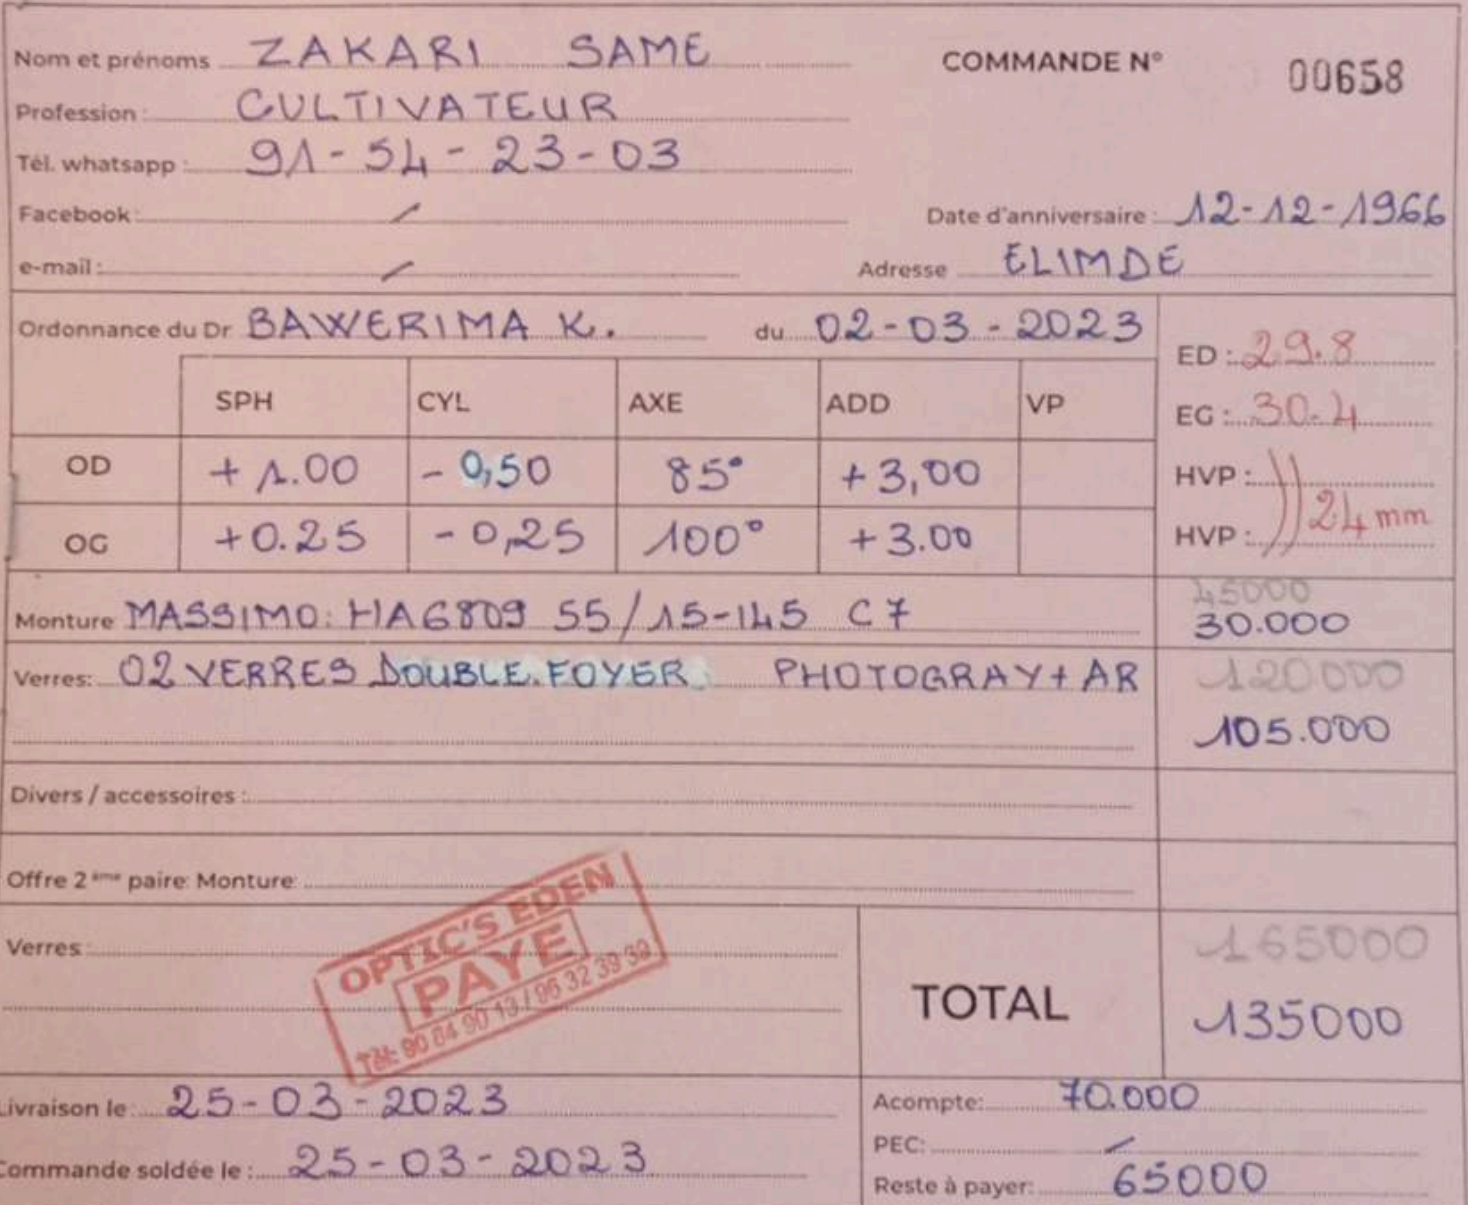 Nom et prénoms ZAKARI SAME COMMANDE N° 00658
Profession : CULTIVATEUR
Tél. whatsapp : 91-54-23-03
Facebook : / Date d'anniversaire : 12-12-1966
e-mail : / Adresse ELIMDE
Ordonnance du Dr BAWERIMA K. du 02-03-2023 ED : 29.8
SPH CYL AXE ADD VP EG : 30.4
OD +1.00 -0,50 85° +3,00 HVP :
OG +0.25 -0,25 100° +3.00 HVP : 24 mm
45000
Monture MASSIMO: HA6809 55/15-145 C7 30.000
Verres: 02 VERRES DOUBLE.FOYER PHOTOGRAY+AR 120000
105.000
Divers / accessoires :
Offre 2ème paire: Monture:
Verres : 165000
OPTIC'S EDEN
PAYE
Tél: 90 84 90 13 / 96 32 39 39
TOTAL 135000
Livraison le : 25-03-2023 Acompte: 70.000
PEC: /
Commande soldée le : 25-03-2023 Reste à payer: 65000